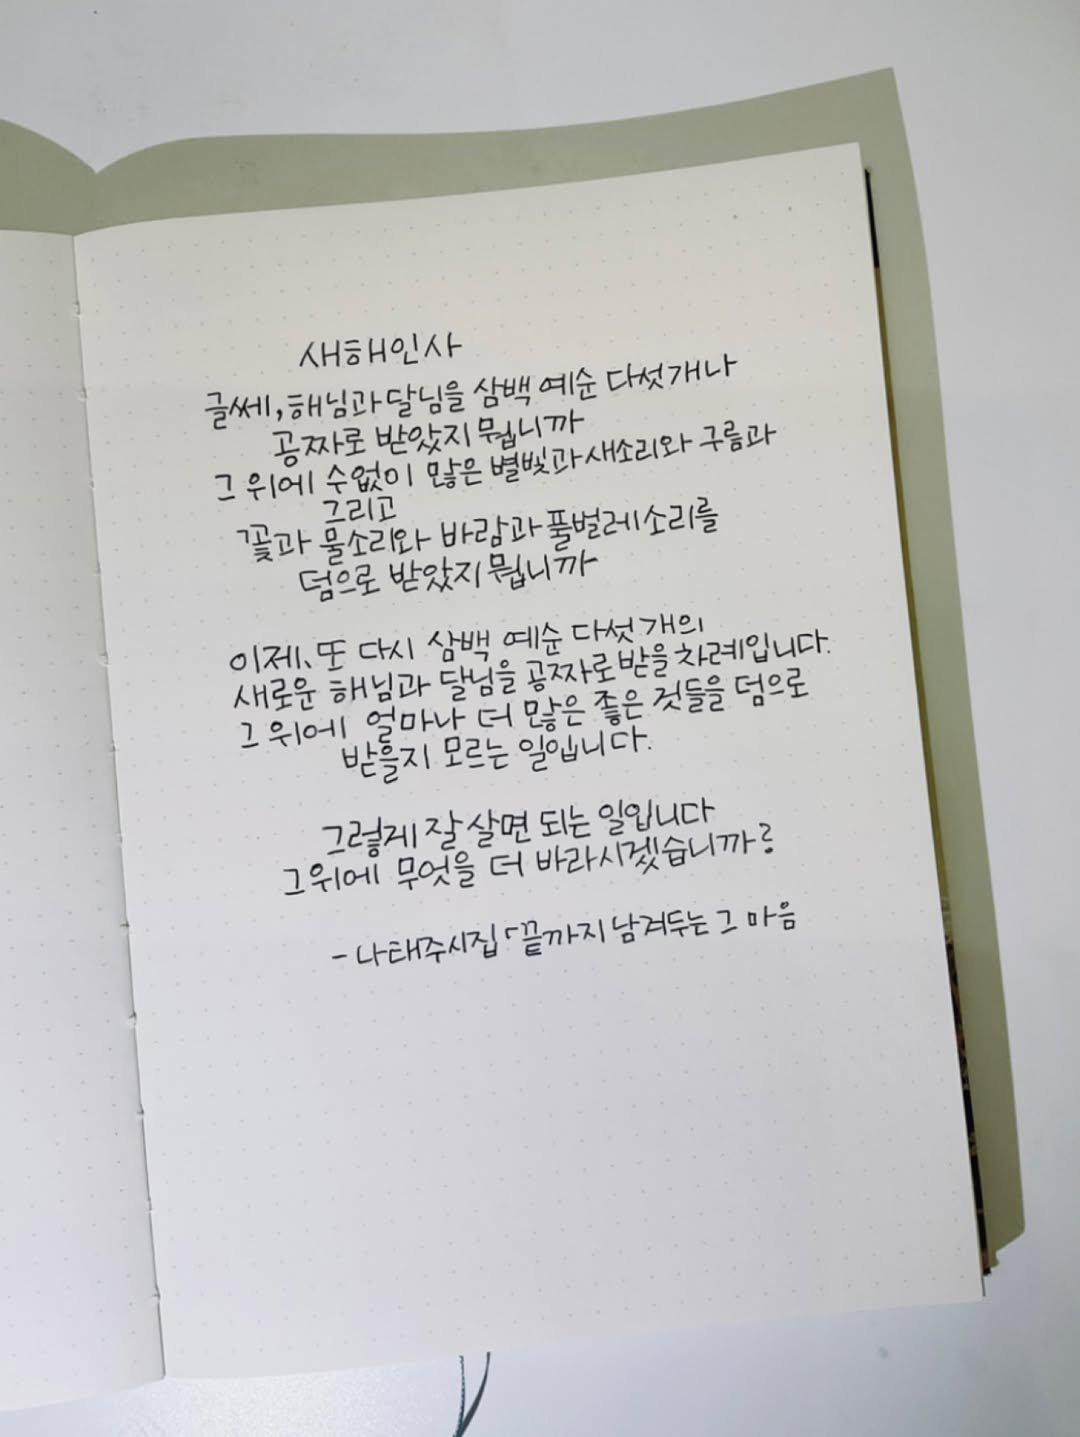 새해인사
글쎄, 해님과 달님을 삼백 예순 다섯개나
공짜로 받았지 뭡니까
그 위에 수없이 많은 별빛과 새소리와 구름과
그리고
꽃과 물소리와 바람과 풀벌레소리를
덤으로 받았지 뭡니까
이제, 또 다시 삼백 예순 다섯 개의
새로운 해님과 달님을 공짜로 받을 차례입니다.
그 위에 얼마나 더 많은 좋은 것들을 덤으로
받을지 모르는 일입니다.
그렇게 잘 살면 되는 일입니다
그위에 무엇을 더 바라시겠습니까?
- 나태주시집 「끝까지 남겨두는 그 마음